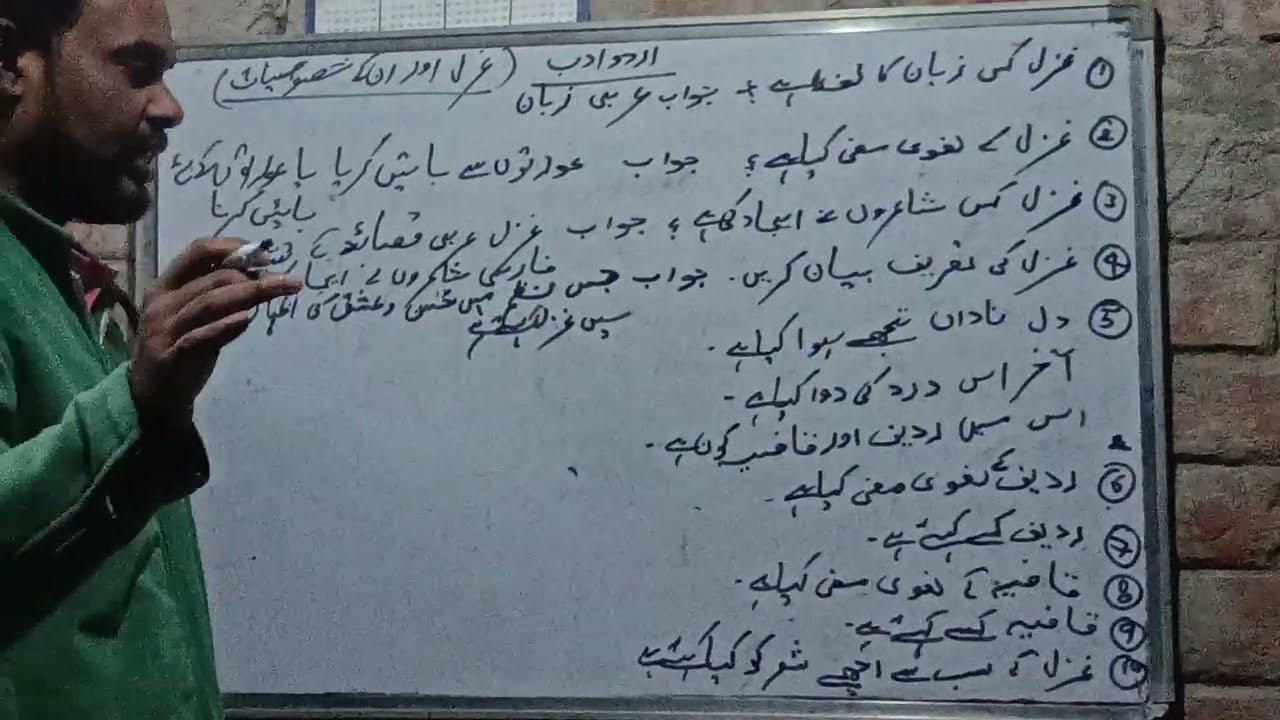 اردو ادب (غزل اور ان کے خصوصیات)
① غزل کس زبان کا لفظ ہے ؟ جواب عربی زبان
② غزل کے لغوی معنی کیا ہے ؟ جواب عورتوں سے باتیں کرنا یا عورتوں کی
باتیں کرنا
③ غزل کس شاعروں نے ایجاد کی ہے ؟ جواب غزل عربی قصائد کے
فارسی شاعروں نے ایجاد
④ غزل کی تعریف بیان کریں ۔ جواب جس نظم میں حسن و عشق کی اظہار
سے غزل کہتے ہے
⑤ دل ناداں تجھے ہوا کیا ہے ۔
آخر اس درد کی دوا کیا ہے ۔
اس میں ردیف اور قافیہ کون ہے ۔
⑥ ردیف کے لغوی معنی کیا ہے ۔
⑦ ردیف کسے کہتے ہے ۔
⑧ قافیہ کے لغوی معنی کیا ہے ۔
⑨ قافیہ کسے کہتے ہے ۔
⑩ غزل کے سب سے اچھے شعر کو کیا کہتے ہے